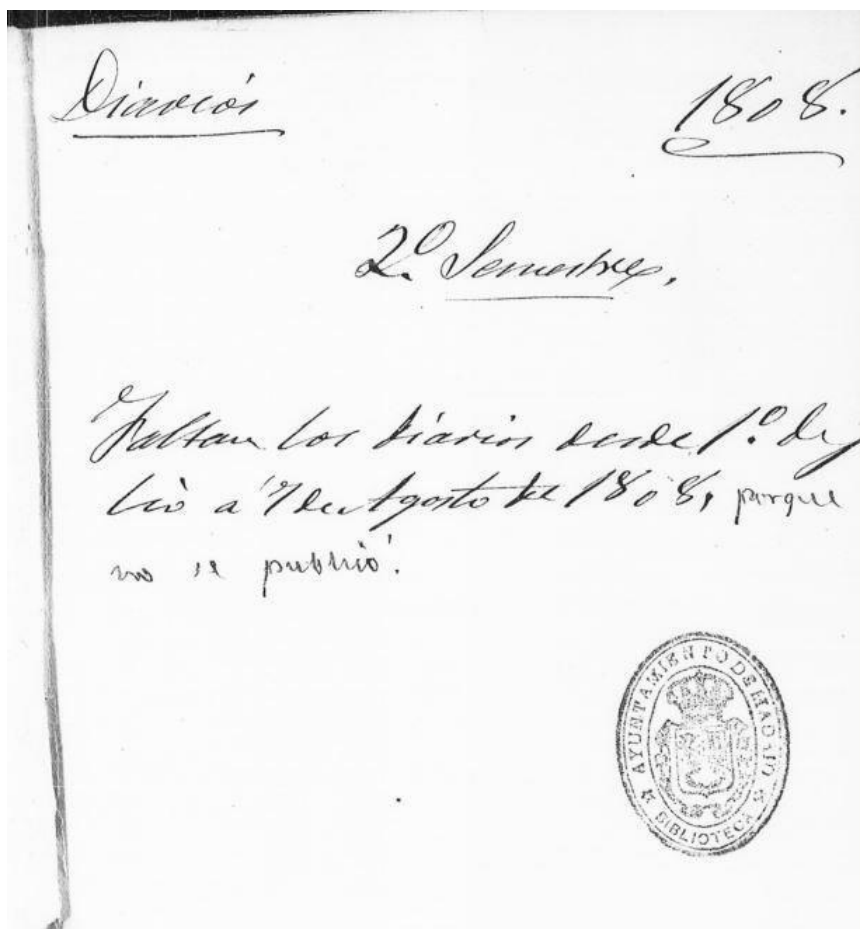 Diarios 1808.
2º Semestre,
Faltan los diarios desde 1.º de J
lio á 7 de Agosto de 1808, porque
no se publicó.
AYUNTAMIENTO DE MADRID
BIBLIOTECA